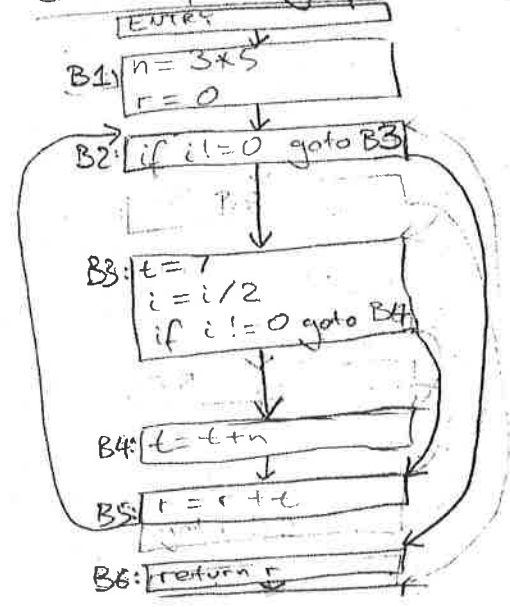 ENTRY
B1:
n = 3*5
r = 0
B2:
if i != 0 goto B3
B3:
t = 1
i = i/2
if i != 0 goto B4
B4:
t = t+n
B5:
r = r + t
B6:
return r